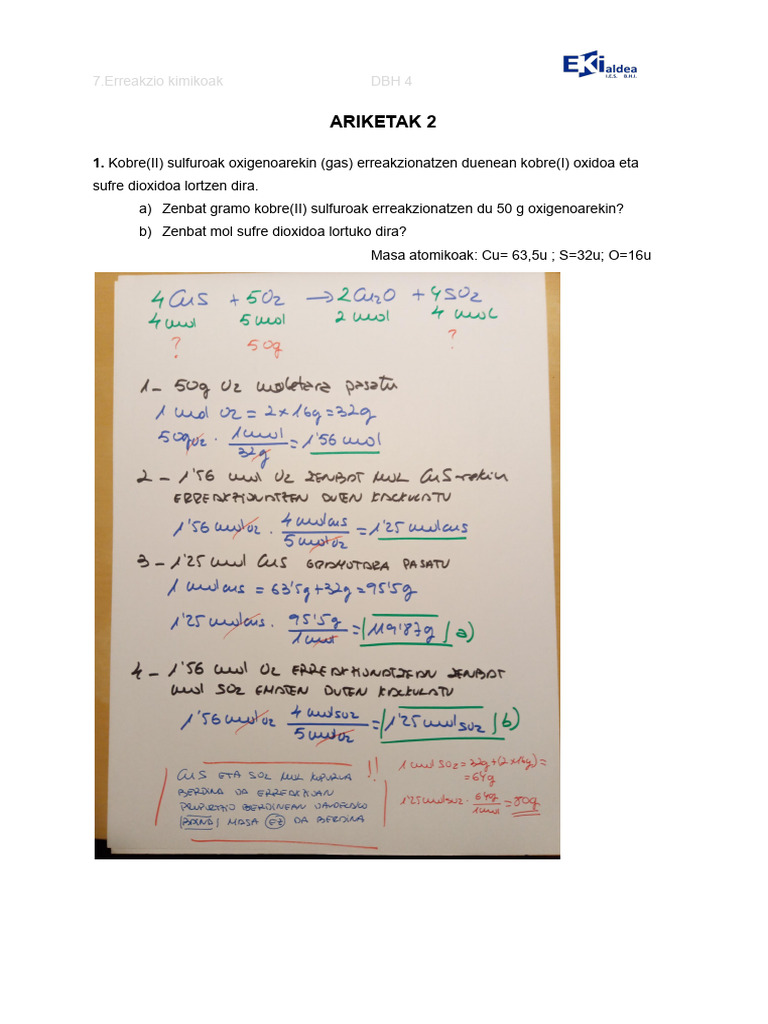 7.Erreakzio kimikoak DBH 4
EKi aldea
I.E.S. B.H.I.
ARIKETAK 2
1. Kobre(II) sulfuroak oxigenoarekin (gas) erreakzionatzen duenean kobre(I) oxidoa eta
sufre dioxidoa lortzen dira.
a) Zenbat gramo kobre(II) sulfuroak erreakzionatzen du 50 g oxigenoarekin?
b) Zenbat mol sufre dioxidoa lortuko dira?
Masa atomikoak: Cu= 63,5u ; S=32u; O=16u
4CuS + 5O2 → 2Cu2O + 4SO2
4 mol 5 mol 2 mol 4 mol
? 50g ?
1 - 50g O2 moletara pasatu
1 mol O2 = 2×16g = 32g
50gO2 · 1mol/32g = 1'56 mol
2 - 1'56 mol O2 ZENBAT MOL CuS-rekin
ERREAKZIONATZEN DUEN KALKULATU
1'56 molO2 · 4molCuS/5molO2 = 1'25 molCuS
3 - 1'25 mol CuS GRAMOTARA PASATU
1 molCuS = 63'5g+32g=95'5g
1'25 molCuS · 95'5g/1mol = 119'87g a)
4 - 1'56 mol O2 ERREAKZIONATZEAN ZENBAT
mol SO2 EMATEN DUTEN KALKULATU
1'56 molO2 4molSO2/5molO2 = 1'25molSO2 b)
CuS ETA SO2 MOL KOPURUA !!
BERDINA DA ERREAKZIOAN
PROPORTZIO BERDINEAN DAUDELAKO
BAINA MASA EZ DA BERDINA
1 molSO2=32g+(2×16g)=
=64g
1'25molSO2 · 64g/1mol =80g